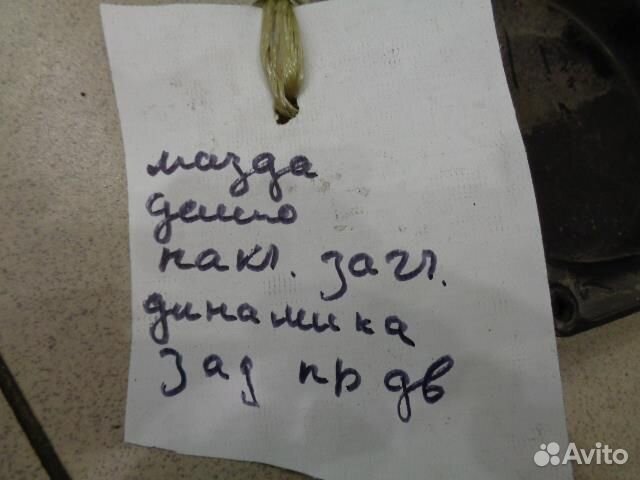 мазда
демио
накл. загл.
динамика
зад пр дв
Avito